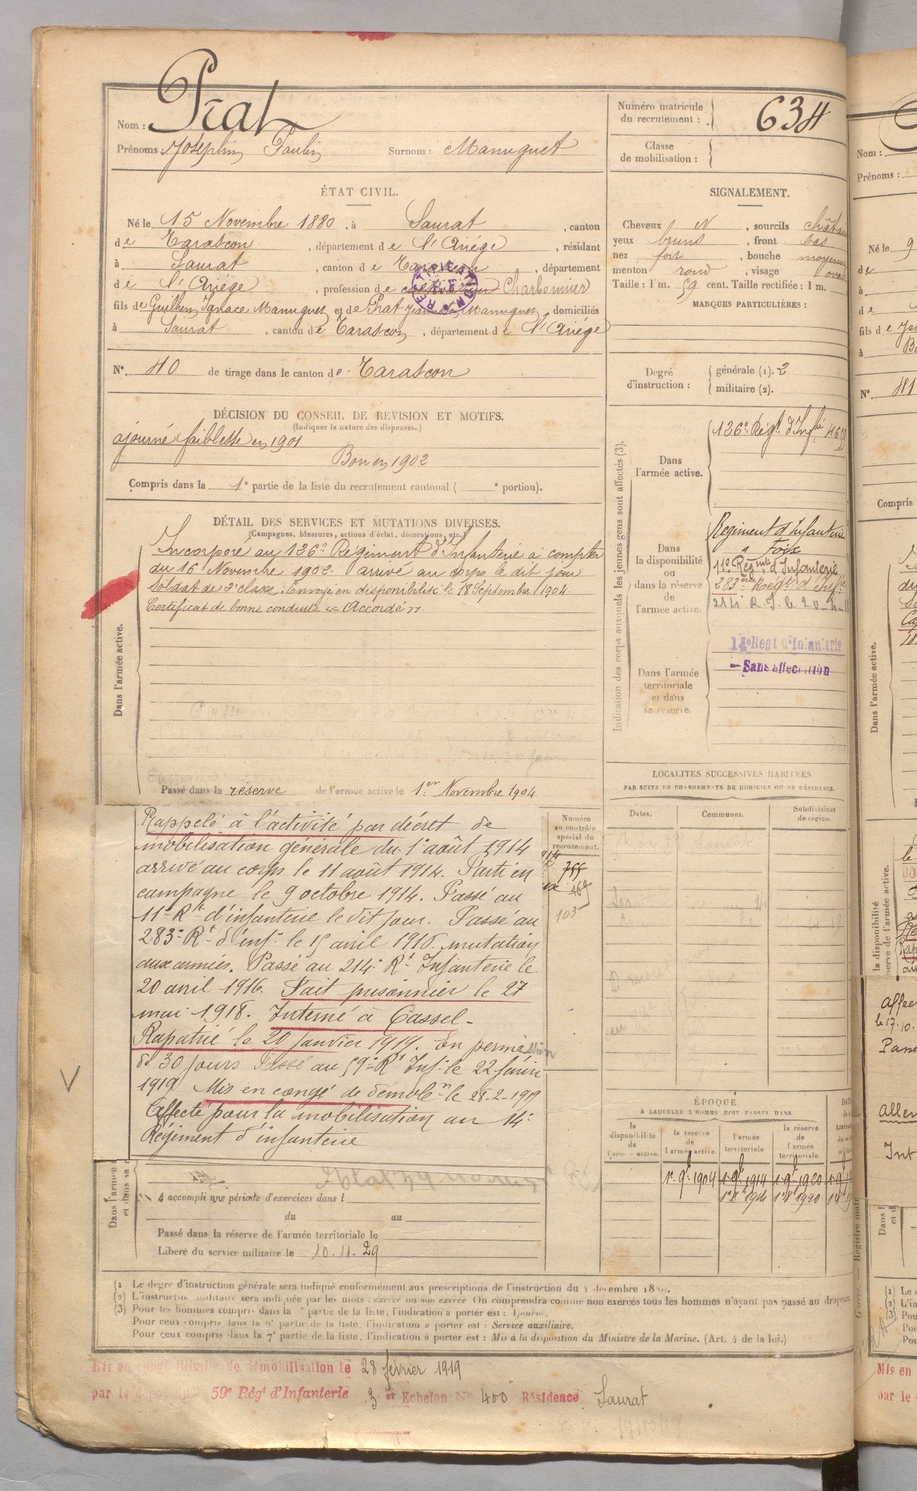 Nom : Prat
Prénoms : Joséphin Paulin Surnom : Manuguet
ÉTAT CIVIL.
Né le 15 Novembre 1880, à Saurat, canton
de Tarascon, département de l'Ariège, résidant
à Saurat, canton de Tarascon, département
de l'Ariège, profession de Charbonnier
fils de Guilhem Ignace Manuguet et de Prat Manuguet, domiciliés
à Saurat, canton de Tarascon, département de l'Ariège
N° 40 de tirage dans le canton de Tarascon
DÉCISION DU CONSEIL DE REVISION ET MOTIFS.
(Indiquer la nature des dispenses.)
ajourné faiblesse en 1901
Bon en 1902
Compris dans la 1e partie de la liste du recrutement cantonal ( e portion).
DÉTAIL DES SERVICES ET MUTATIONS DIVERSES.
(Campagnes, blessures, actions d'éclat, décorations, etc.)
Incorporé au 126e Régiment d'Infanterie à compter
du 16 Novembre 1902 arrivé au corps le dit jour
Soldat de 2e classe. Envoyé en disponibilité le 18 Septembre 1904
Certificat de bonne conduite "Accordé"
Dans l'armée active.
Passé dans la réserve de l'armée active le 1er Novembre 1904
Rappelé à l'activité par décret de
mobilisation générale du 1 août 1914
arrivé au corps le 11 août 1914. Parti en
campagne le 9 octobre 1914. Passé au
11e Rt d'infanterie le dit jour. Passé au
283e Rt d'infie le 15 avril 1916. mutation
aux armées. Passé au 214e Rt Infanterie le
20 avril 1916. Fait prisonnier le 27
mai 1918. Interné à Cassel.
Rapatrié le 20 janvier 1919. En permission
de 30 jours Passé au 59e Rt Inf. le 22 février
1919 Mis en congé de démobon le 28-2-1919
Affecté pour la mobilisation au 14e
Régiment d'infanterie
Numéro
au contrôle
spécial du
recrutement.
755
469
103
A accompli une période d'exercices dans l
du au
Passé dans la réserve de l'armée territoriale le
Libéré du service militaire le 10.11.29
Numéro matricule
du recrutement : 634
Classe
de mobilisation :
SIGNALEMENT.
Cheveux N, sourcils
yeux bruns, front bas
nez fort, bouche moyenne
menton rond, visage
Taille : 1 m. 59 cent. Taille rectifiée : 1 m.
MARQUES PARTICULIÈRES :
Degré
d'instruction :
générale (1). 2
militaire (2).
Indication des corps auxquels les jeunes gens sont affectés (3).
Dans
l'armée active.
126e Régt d'Infie
Dans
la disponibilité
ou
dans la réserve
de
l'armée active.
Régiment d'Infanterie
à Foix
11e Régiment d'Infanterie
283e Régt d'Infie
214e R.I. le 20-4-
Dans l'armée
territoriale
et dans
sa réserve.
14e Regt d'Infanterie
Sans affectation
LOCALITÉS SUCCESSIVES HABITÉES
PAR SUITE DE CHANGEMENTS DE DOMICILE OU DE RÉSIDENCE.
Dates. Communes. Subdivisions
de région.
ÉPOQUE
À LAQUELLE L'HOMME DOIT PASSER DANS
la
disponibilité
de
l'armée active.
la réserve
de
l'armée active.
l'armée
territoriale.
la réserve
de
l'armée
territoriale.
1er 9bre 1904 1er 9bre 1914 1er 9bre 1920
(1) Le degré d'instruction générale sera indiqué conformément aux prescriptions de l'instruction du
(2) L'instruction militaire sera indiquée par les mots : exercé ou non exercé. On comprendra comme non exercés tous les hommes n'ayant pas passé au drapeau
(3) Pour les hommes compris dans la partie de la liste, l'indication à porter est :
Pour ceux compris dans la partie de la liste, l'indication à porter est : Service auxiliaire.
Pour ceux compris dans la 7e partie de la liste, l'indication à porter est : Mis à la disposition du Ministre de la Marine. (Art. 4 de la loi.)
Mis en congé illimité de démobilisation le 28 février 1919
par le 59e Régt d'Infanterie 3 Echelon N° 400 Résidence Saurat